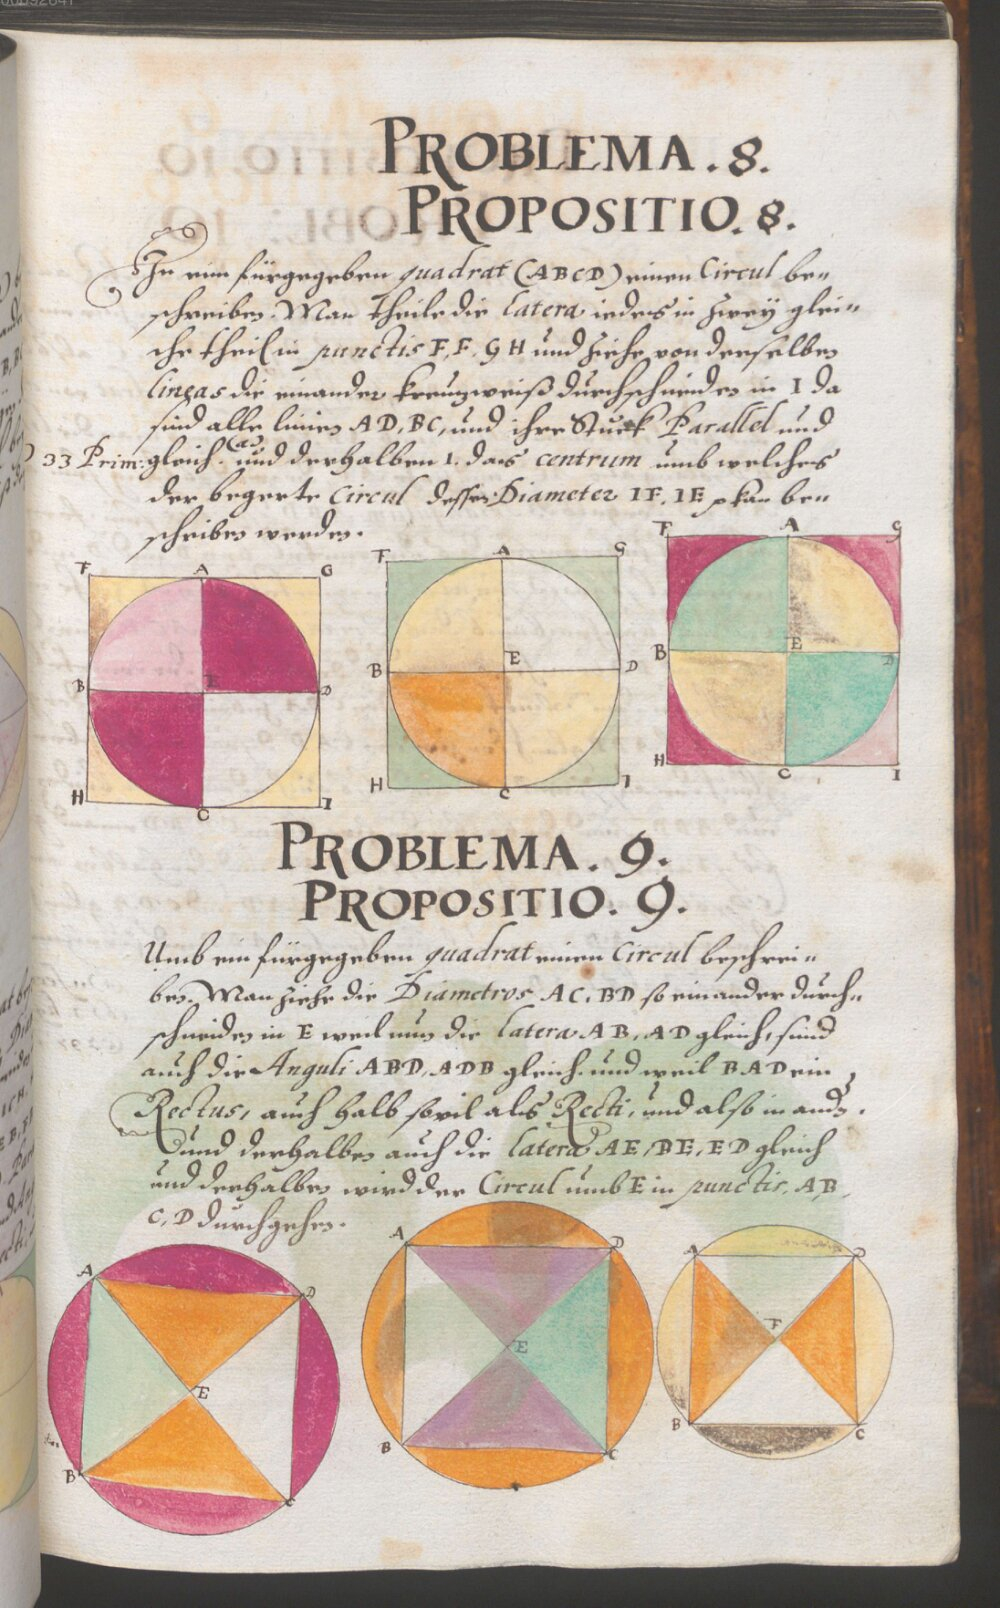 PROBLEMA. 8.
PROPOSITIO. 8.
In ein fürgegeben quadrat (ABCD) einen Circul be=
schreiben. Man theile die latera iedes in zwey glei=
che theil in punctis F, F. G H und ziehe von derselben
lineas die einander kreuzweiß durchschneiden in I da
sind alle linien AD, BC, und ihre Stuck Parallel und
33 Prim: gleich. und derhalben I. das centrum umb welches
der begerte Circul dessen Diameter IF, IE kan be=
schriben werden.
F A G
B E D
H C I
F A G
B E D
H C I
F A G
B E D
H C I
PROBLEMA. 9.
PROPOSITIO. 9.
Umb ein fürgegeben quadrat einen Circul beschrei=
ben. Man ziehe die Diametros AC, BD so einander durch=
schneiden in E weil nun die latera AB, AD gleich, sind
auch die Anguli ABD, ADB gleich. und weil BAD ein
Rectus, auch halb sovil als Recti, und also in and.
und derhalben auch die latera AE, BE, ED gleich
und derhalben wird der Circul umb E in punctis, AB,
C, D durchgehen.
A D
E
B C
A D
E
B C
A D
F
B C